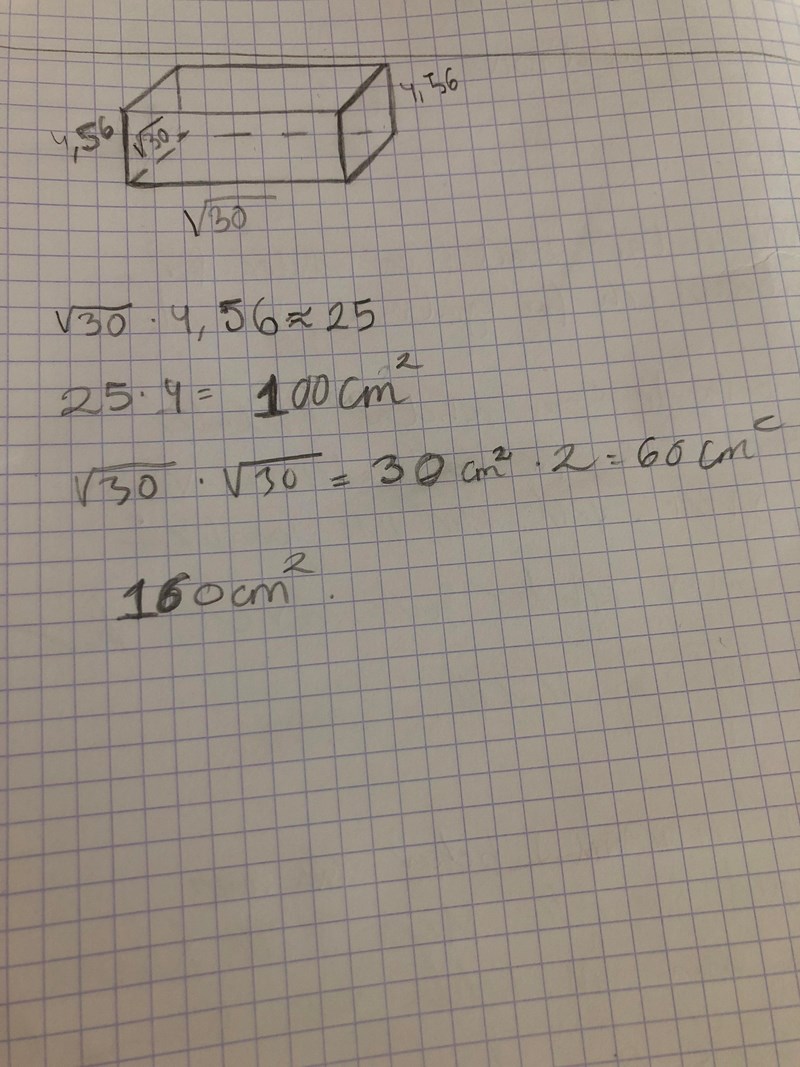 4,56
4,56
√30
√30
√30 · 4,56 ≈ 25
25 · 4 = 100 cm²
√30 · √30 = 30 cm² · 2 = 60 cm²
160 cm².